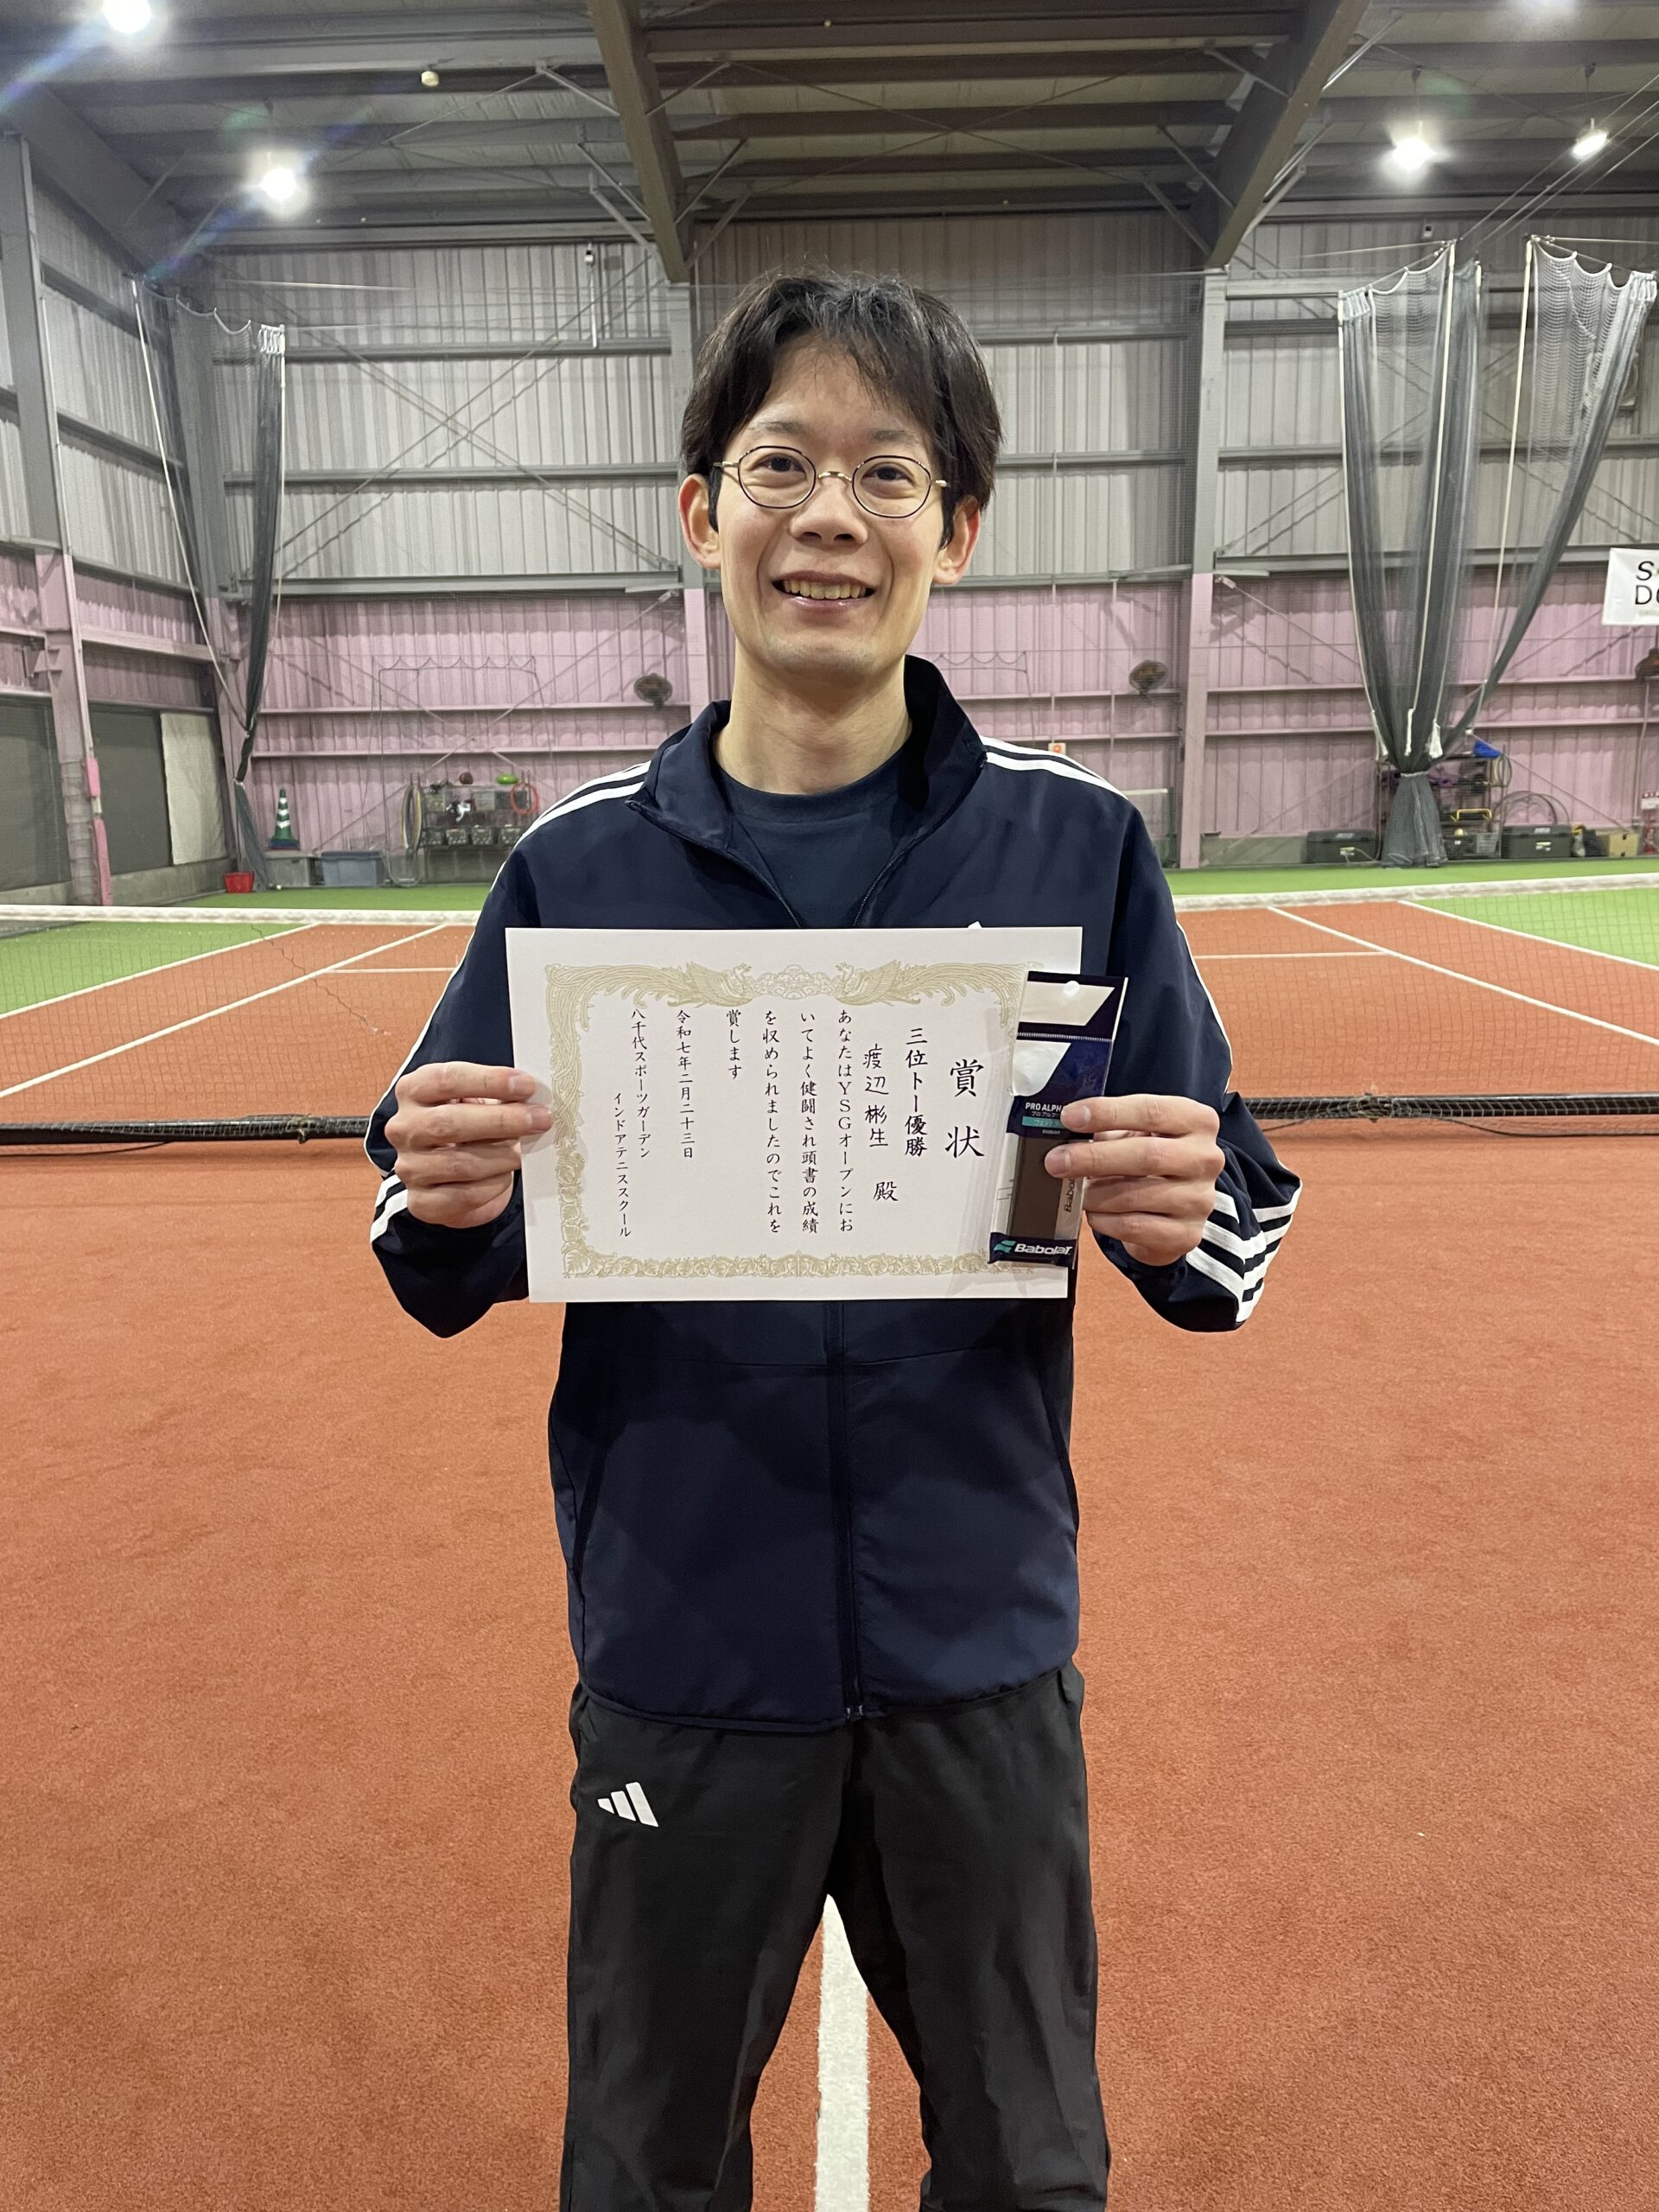 賞状
三位トー優勝
渡辺 彬生 殿
あなたはYSGオープンにお
いてよく健闘され頭書の成績
を収められましたのでこれを
賞します
令和七年二月二十三日
八千代スポーツガーデン
インドアテニススクール
PRO ALPH
Babolat